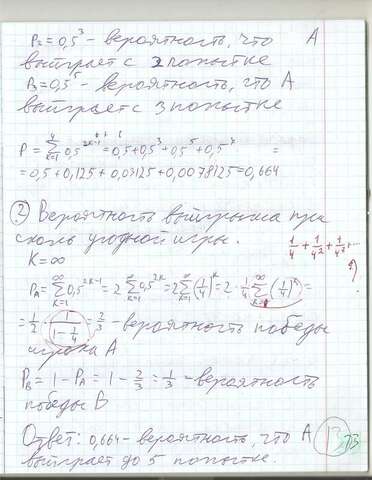 P₂ = 0,5³ – вероятность, что A
выиграет с 2 попытке
P₃ = 0,5⁵ – вероятность, что A
выиграет с 3 попытке
P = ∑ₖ₌₁⁴ 0,5²ᵏ⁻¹ = 0,5 + 0,5³ + 0,5⁵ + 0,5⁷ =
= 0,5 + 0,125 + 0,03125 + 0,0078125 = 0,664
② Вероятность выигрыша при
сколь угодной игры.
1/4 + 1/4² + 1/4³ + ...
K = ∞
P_A = ∑ₖ₌₁^∞ 0,5²ᵏ⁻¹ = 2 ∑ₖ₌₁^∞ 0,5²ᵏ = 2 ∑ₖ₌₁^∞ (1/4)ᵏ = 2 · 1/4 ∑ (1/4)ᵏ =
= 1/2 · 1/(1 − 1/4) = 2/3 – вероятность победы
игрока A
P_B = 1 − P_A = 1 − 2/3 = 1/3 – вероятность
победы B
Ответ: 0,664 – вероятность, что A
выиграет до 5 попытке.
13